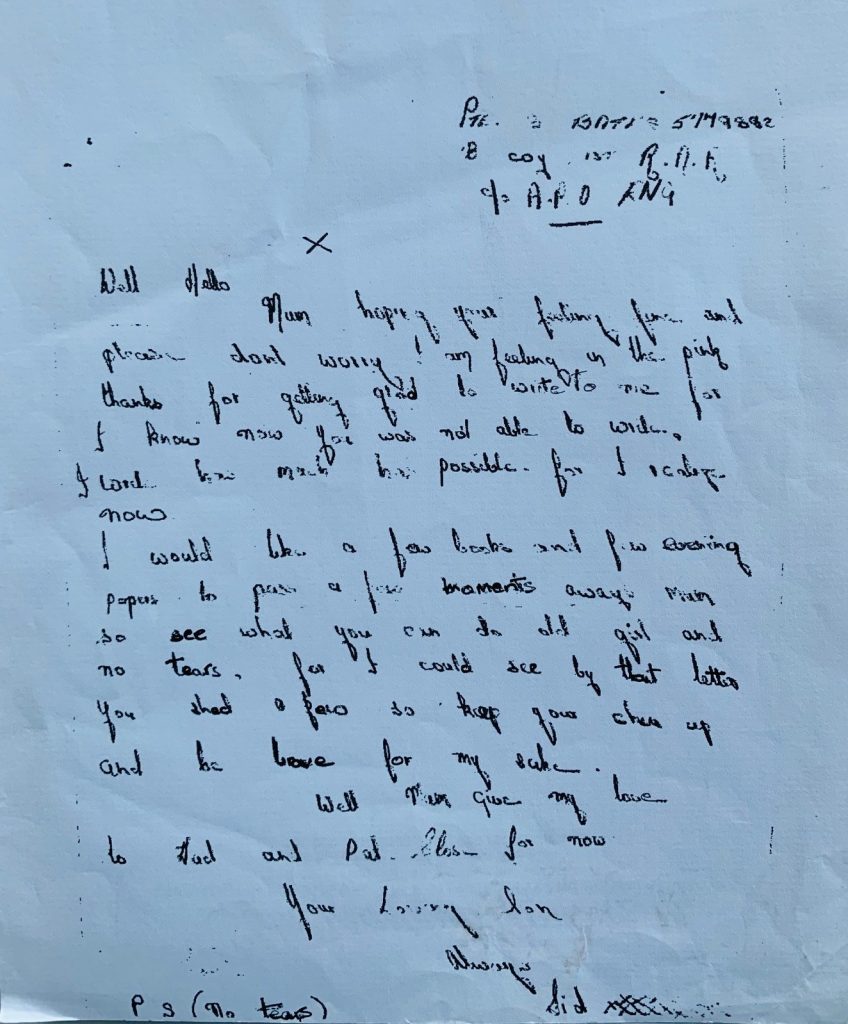 Pte. S BATES 5779882
B coy 1st R.N.R
c/o A.P.O ENG
X
Well Hello
Mum hoping your feeling fine and
please dont worry I am feeling in the pink
thanks for getting glad to write to me for
I know now you was not able to write.
I much possible. for I realize
now
I would like a few books and few evening
papers to pass a few moments away Mum
so see what you can do old girl and
no tears, for I could see by that letter
you shed a few so keep your chin up
and be brave for my sake.
Well Mum give my love
to Dad and Pat. Close for now
Your Loving Son
Always
Sid xxxx
P S (No tears)